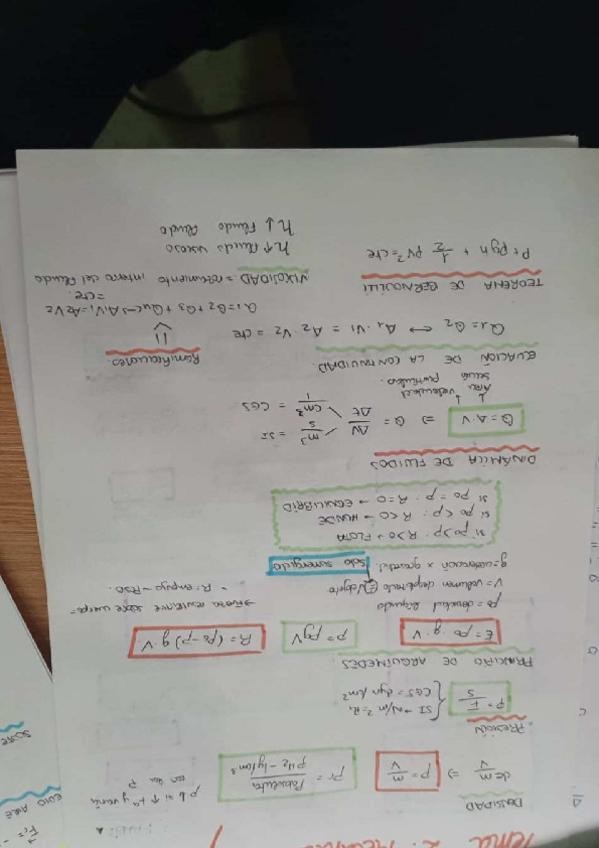 Tema 2.
DENSIDAD
d = m/V ⇒ ρ = m/V
ρr = ρabsoluta / ρH₂ - 1g/cm³
PRESIÓN
P = F/S
SI → N/m² = Pa
CGS = dyn/cm²
PRINCIPIO DE ARQUÍMEDES
E = ρo · g · V
P = ρgV
R = (ρo - ρ) g · V
ρo densidad líquido
V = volumen desplazado
g = aceleración x gravedad
solo sumergido
→ Fuerza resultante sobre cuerpo =
Si ρo > ρ : R > 0 → FLOTA
Si ρo < ρ : R < 0 → HUNDE
Si ρo = ρ : R = 0 → EQUILIBRIO
DINÁMICA DE FLUIDOS
Q = A · V ⇒ Q = ΔV/Δt
m³/s = SI
= CGS
Área velocidad
partículas
ECUACIÓN DE LA CONTINUIDAD
Q1 = Q2 ↔ A1 · V1 = A2 · V2 = cte
Ramificaciones
Q1 = Q2 + Q3 + Q4
A1V1 = A2V2
= cte
TEOREMA DE BERNOULLI
P + ρgh + 1/2 ρV² = cte
VISCOSIDAD = rozamiento interno del fluido
η↑ fluido viscoso
η↓ fluido fluido